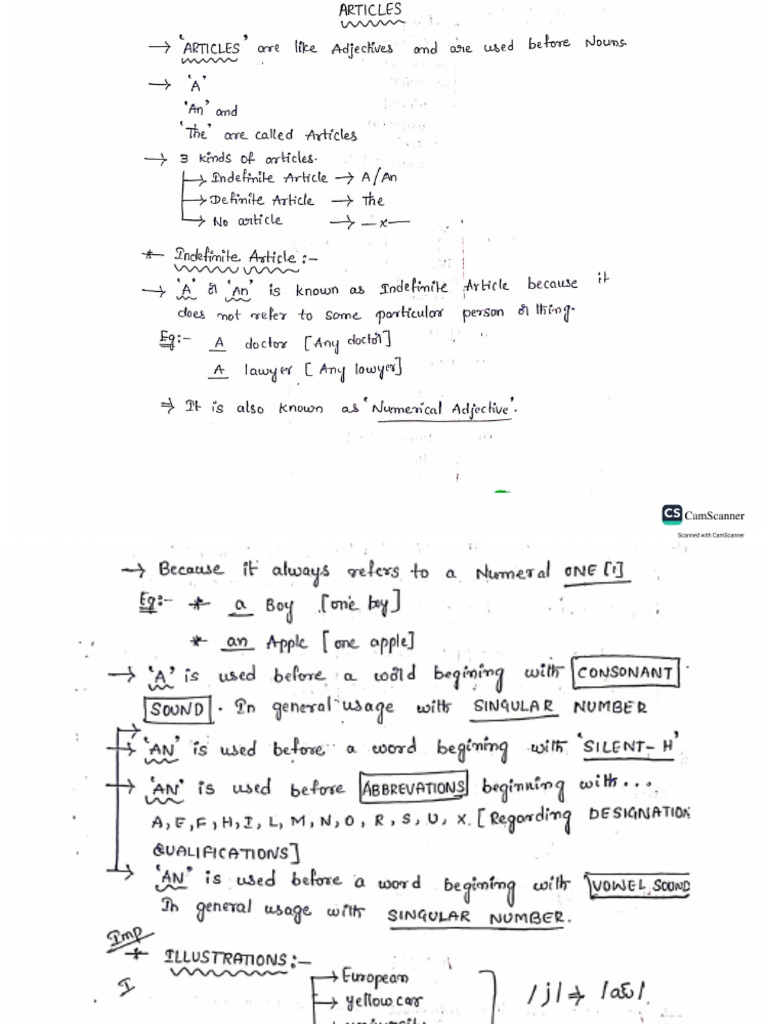 ARTICLES
→ 'ARTICLES' are like Adjectives and are used before Nouns.
→ 'A'
'An' and
'The' are called Articles
→ 3 kinds of articles.
→ Indefinite Article → A/An
→ Definite Article → The
→ No article → —x—
* Indefinite Article :-
→ 'A' or 'An' is known as Indefinite Article because it
does not refer to some particular person or thing.
Eg:- A doctor [Any doctor]
A lawyer [Any lawyer]
⇒ It is also known as 'Numerical Adjective'.
CS CamScanner
Scanned with CamScanner
→ Because it always refers to a Numeral ONE [1]
Eg:- * a Boy [one boy]
* an Apple [one apple]
→ 'A' is used before a word begining with CONSONANT
SOUND. In general usage with SINGULAR NUMBER
→ 'AN' is used before a word begining with 'SILENT-H'
→ 'AN' is used before ABBREVATIONS beginning with...
A, E, F, H, I, L, M, N, O, R, S, U, X. [Regarding DESIGNATION
QUALIFICATIONS]
→ 'AN' is used before a word begining with VOWEL SOUND
In general usage with SINGULAR NUMBER.
Imp
* ILLUSTRATIONS :-
I → European
→ yellow car /j/ ⇒